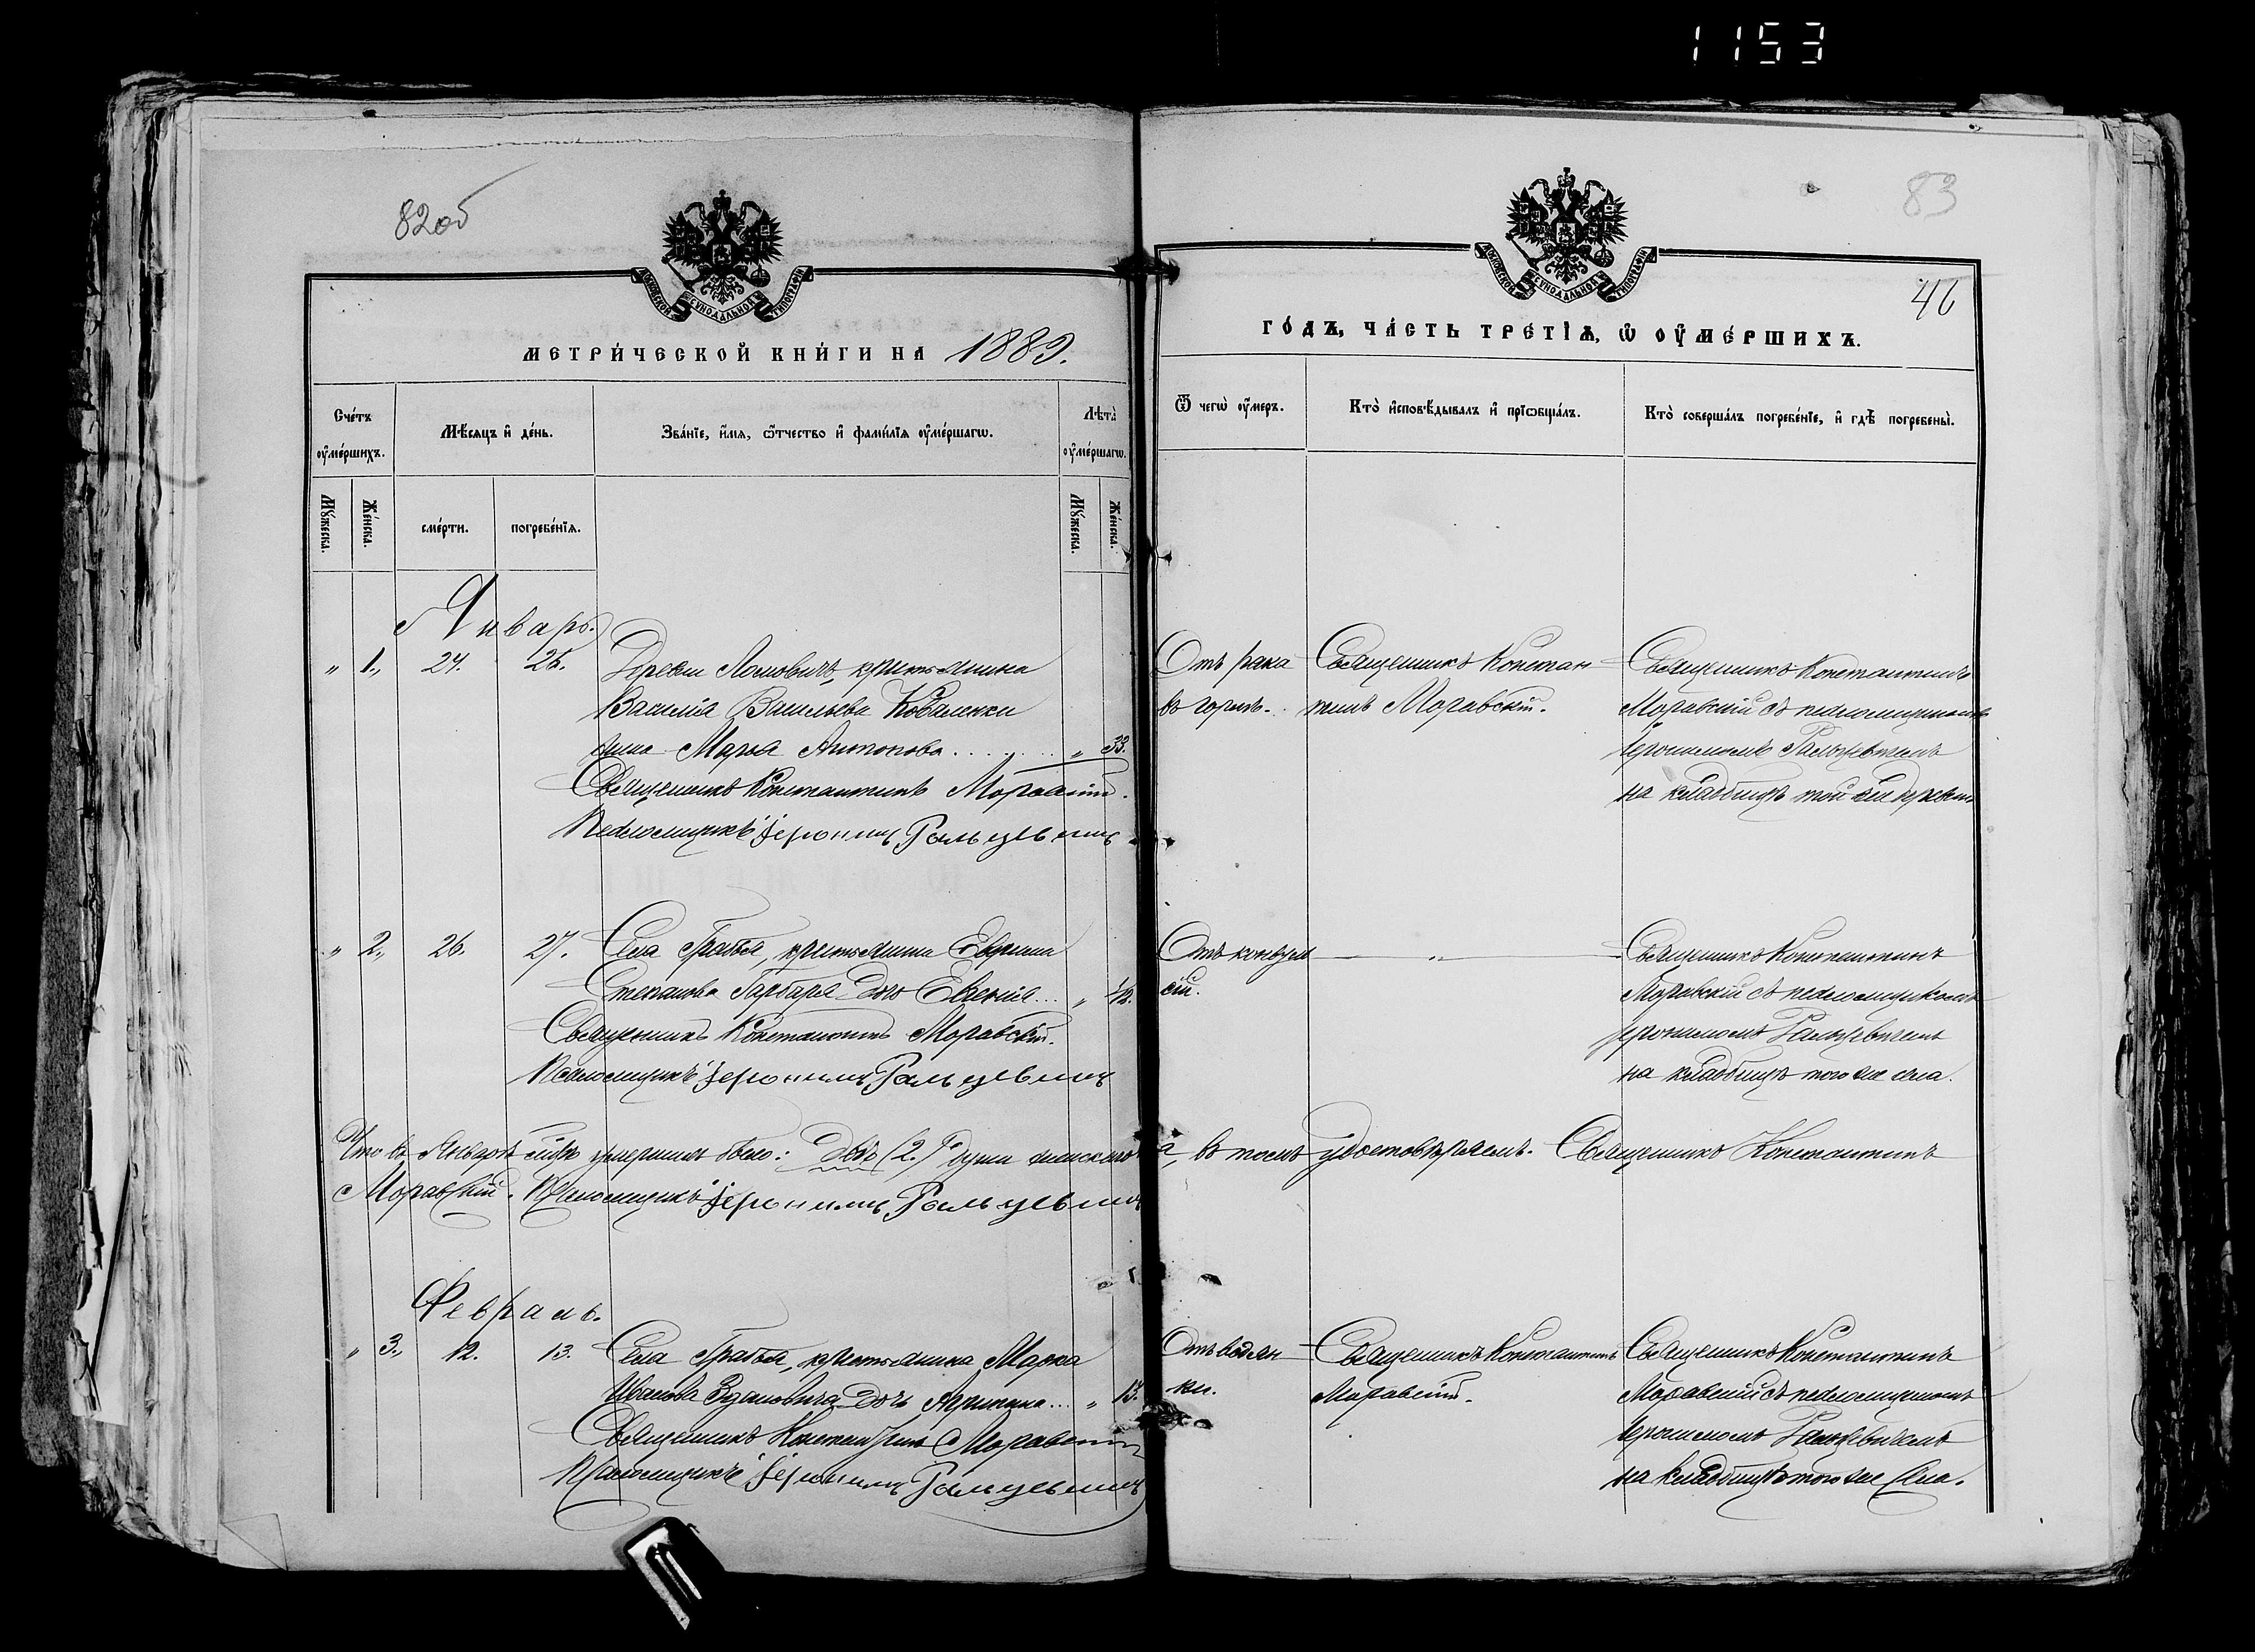 1153
82об
83
46
МОСКОВСКОЙ СѴНОДАЛЬНОЙ ТИПОГРАФІИ
МОСКОВСКОЙ СѴНОДАЛЬНОЙ ТИПОГРАФІИ
МЕТРИ́ЧЕСКОЙ КНИ́ГИ НА 1889.
ГО́ДЪ, ЧА́СТЬ ТРЕ́ТІѦ, Ѡ҆ ОУ҆МЕ́РШИХЪ.
Сче́тъ оу҆ме́ршихъ.
Мѣ́сяцъ и҆ де́нь.
Зва́нїе, и҆́мѧ, ѻ҆́тчество и҆ фами́лїѧ оу҆ме́ршагѡ.
Лѣ̀та̀ оу҆ме́ршагѡ.
Ѿ чегѡ̀ оу҆́меръ.
Кто̀ и҆сповѣ́дывалъ и҆ прїѡбща́лъ.
Кто̀ соверша́лъ погребе́нїе, и҆ гдѣ̀ погребены̀.
Мꙋ́жеска.
Же́нска.
сме́рти.
погребе́нїѧ.
Мꙋ́жеска.
Же́нска.
Январь.
" 1., 24. 25. Деревни крестьянина
Василія Васильева Коваленки
жена Марья Антонова . . . . . . " 33.
Священникъ Константинъ Моравскій.
Псаломщикъ Іеронимъ Ральцевичъ
Отъ рака
въ горлѣ.
Священникъ Констан
тинъ Моравскій.
Священникъ Константинъ
Моравскій съ псаломщикомъ
Іеронимомъ Ральцевичемъ
на кладбищѣ той же деревни
" 2., 26. 27. Села крестьянина
Степанова Гарбаря дочь Евгенія ... " 1/2.
Священникъ Константинъ Моравскій.
Псаломщикъ Іеронимъ Ральцевичъ
Отъ конвуль
сій.
"
Священникъ Константинъ
Моравскій съ псаломщикомъ
Іеронимомъ Ральцевичемъ
на кладбищѣ того же села.
Что въ Январѣ сихъ умершихъ было: двѣ (2.) души женскаго пола, въ томъ удостовѣряемъ. Священникъ Константинъ
Моравскій. Псаломщикъ Іеронимъ Ральцевичъ
Февраль.
" 3., 12. 13. Села крестьянина Марка
Иванова Здановича дочь ... " 13.
Священникъ Константинъ Моравскій
Псаломщикъ Іеронимъ Ральцевичъ
Отъ водян
ки.
Священникъ Константинъ
Моравскій.
Священникъ Константинъ
Моравскій съ псаломщикомъ
Іеронимомъ Ральцевичемъ
на кладбищѣ того же села.